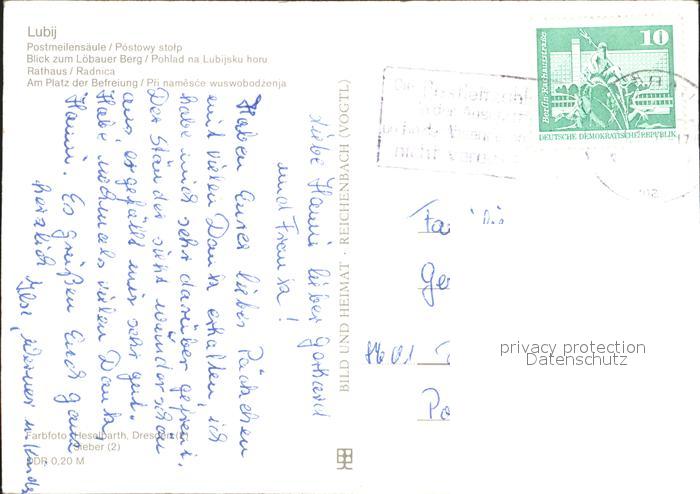 Lubij
Postmeilensäule / Póstowy stołp
Blick zum Löbauer Berg / Pohlad na Lubijsku horu
Rathaus / Radnica
Am Platz der Befreiung / Při naměsće wuswobodźenja
Liebe Hanni lieber Gerhard
und Franka!
Haben Euer liebes Päckchen
mit vielen Dank erhalten, ich
habe mich sehr darüber gefreut.
Der Ständer sieht wunderschön
aus, er gefällt mir sehr gut.
Habe nochmals vielen Dank,
Hanni. Es grüßen Euch ganz
herzlich Ilse, Werner u. Kinder
Farbfoto: Heselbarth, Dresden
Sieber (2)
DDR 0,20 M
BILD UND HEIMAT · REICHENBACH (VOGTL)
10
Berlin, Rathausstraße
DEUTSCHE DEMOKRATISCHE REPUBLIK
Die Postleitzahl
in der
nicht
Fa
Ge
8601
Po
privacy protection
Datenschutz